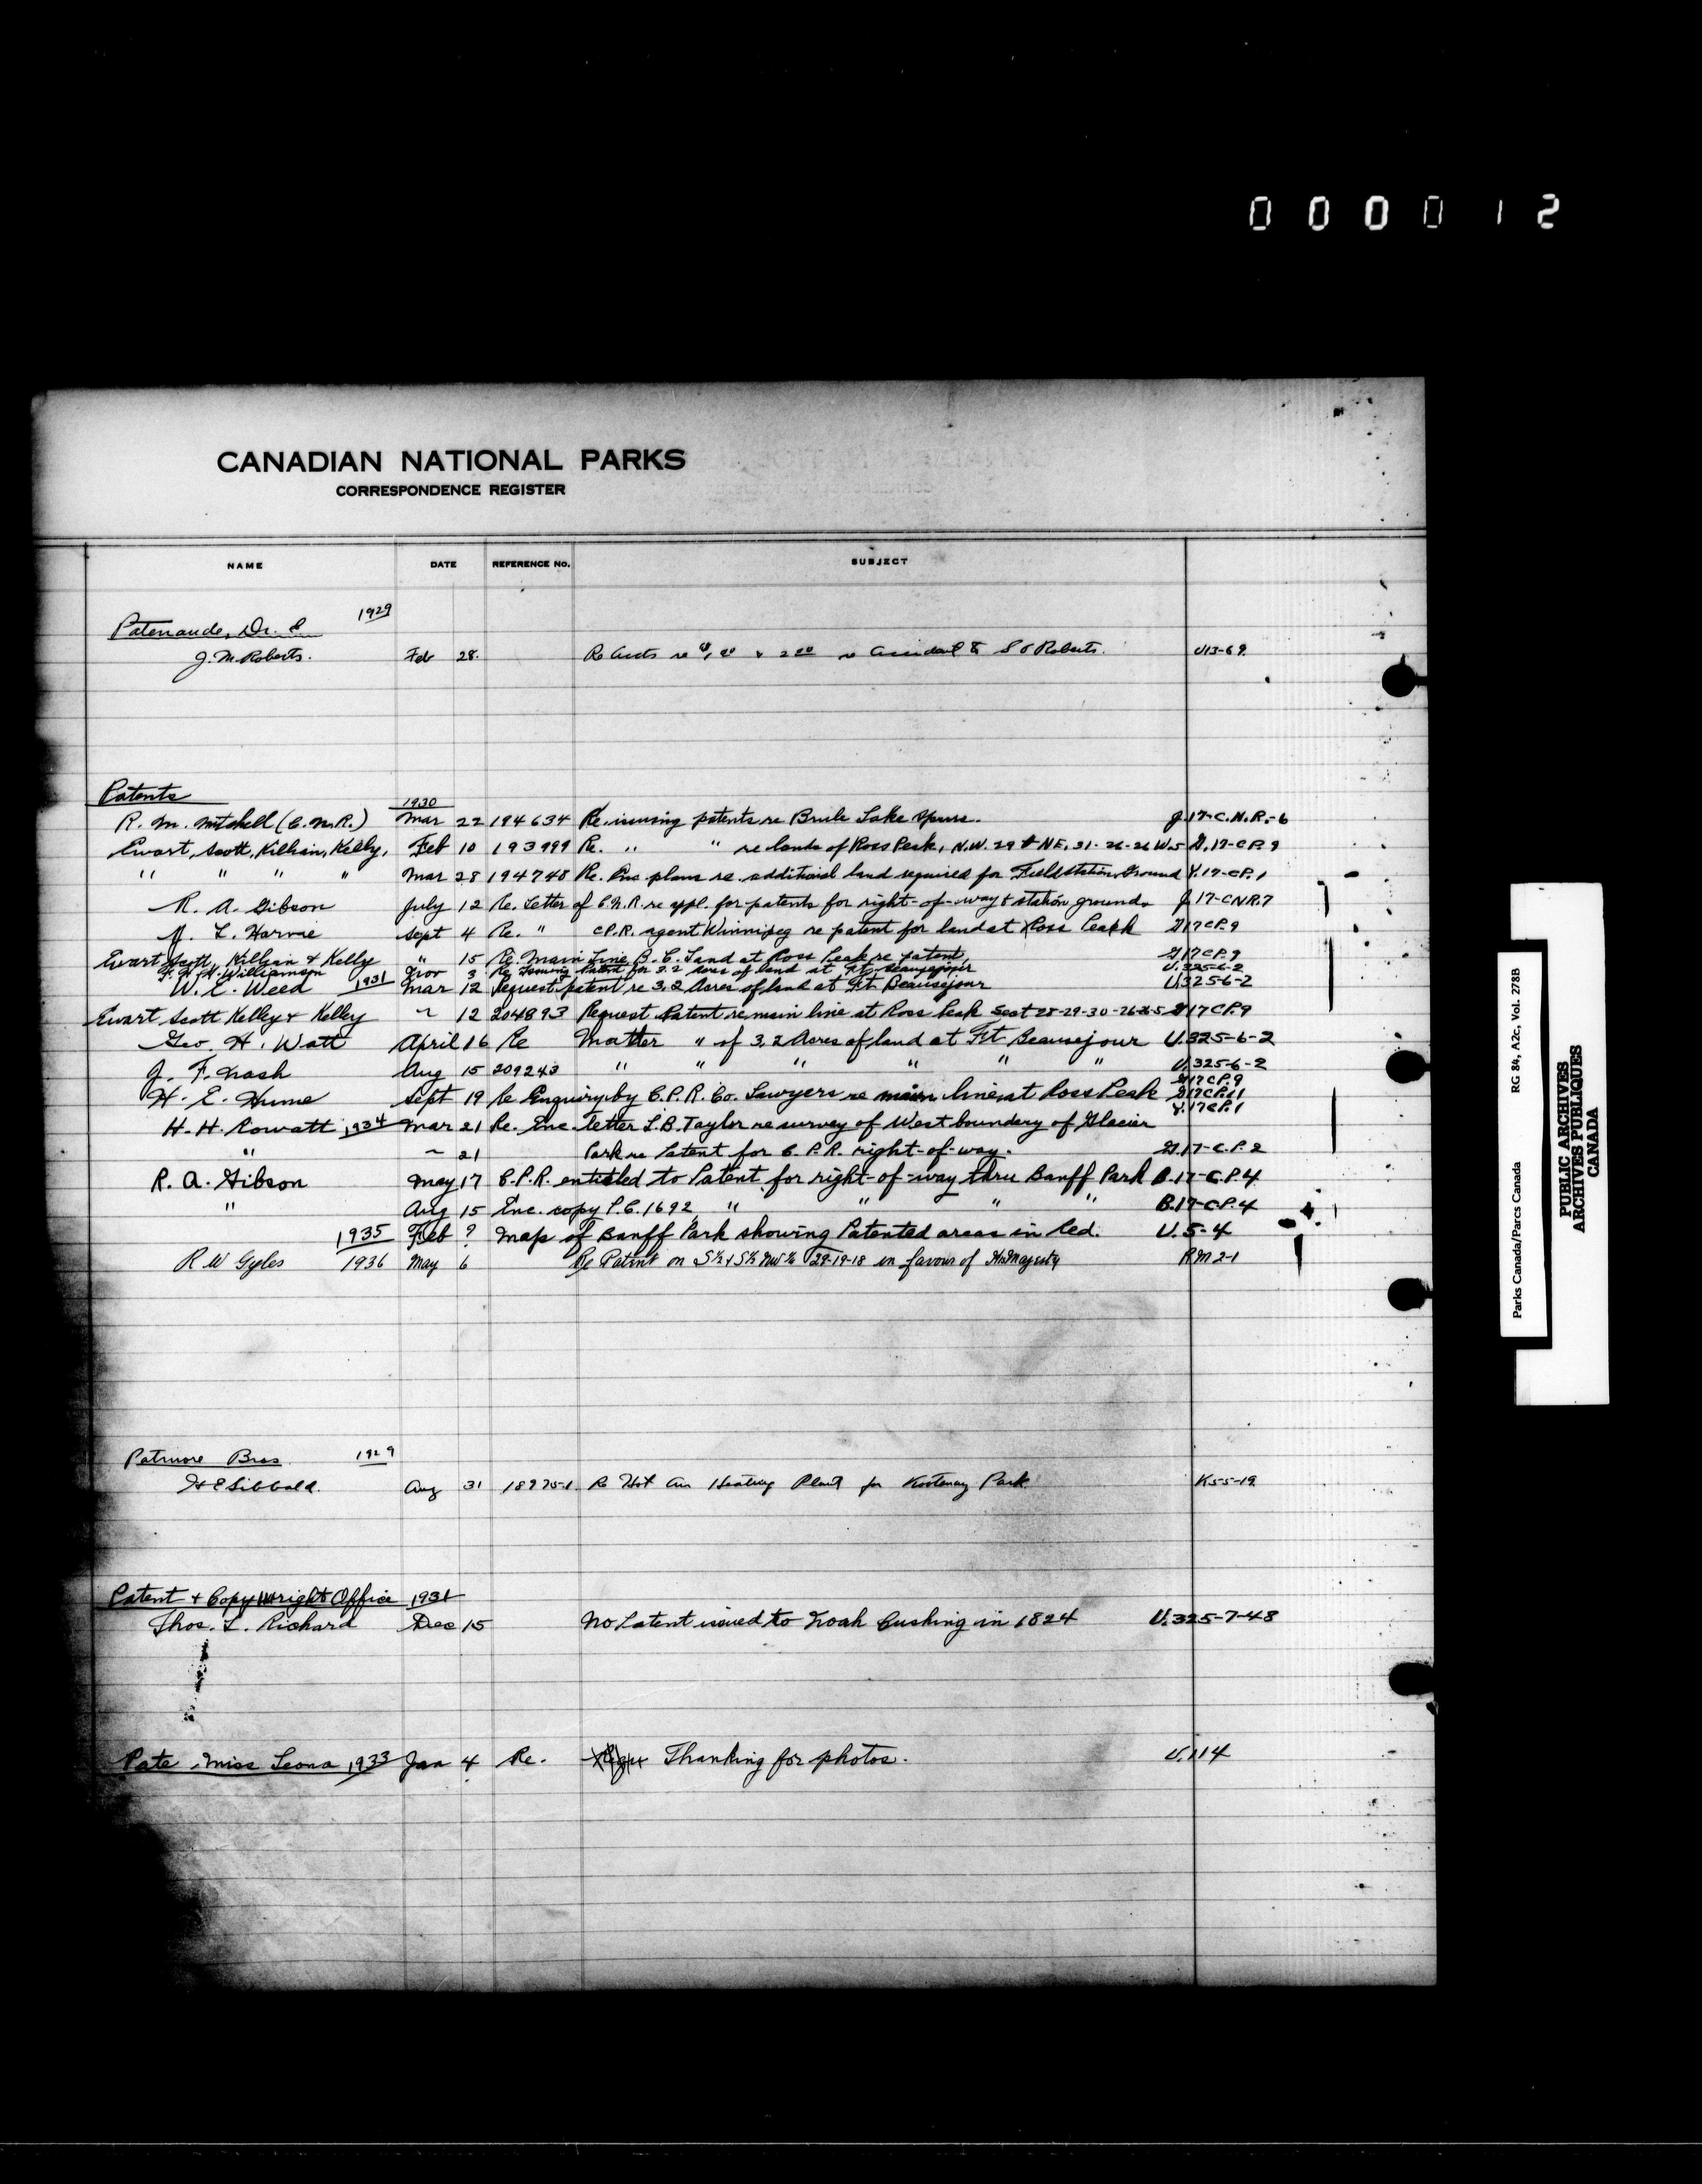 000012
CANADIAN NATIONAL PARKS
CORRESPONDENCE REGISTER
NAME DATE REFERENCE NO. SUBJECT
Patenaude, Dr. 1929
J. M. Roberts. Feb 28. Re Accts re & 2 00 re accident to Roberts. U13-69.
Patents 1930
R. M. Mitchell (C.N.R.) Mar 22 194634 Re. issuing patents re Brule Lake Spurs. J.17-C.N.R.-6
Ewart, Scott, Killian, Kelly, Feb 10 193999 Re. " " re lands of Ross Peak, N.W. 29 & NE. 31-26-26 W.5 G.17-CP.9
" " " " Mar 28 194748 Re. Enc. plans re. additional land required for Field Station Ground Y.17-CP.1
R. A. Gibson July 12 Re. Letter of C.N.R. re appl. for patents for right-of-way & station grounds J 17-CNR.7
L. Harvie Sept 4 Re. " C.P.R. agent Winnipeg re patent for land at Ross Peak G17CP.9
Ewart Scott, Killian & Kelly " 15 Re. Main Line B.C. Land at Ross Peak re patent, G17CP.9
F. H. H. Williamson Nov 3 Re Issuing Patent for 3.2 acres of land at Ft. Beausejour U.325-6-2
W. E. Weed 1931 Mar 12 Request patent re 3.2 Acres of land at Ft. Beausejour U.325-6-2
Ewart Scott Kelley & Kelley " 12 204893 Request Patent re main line at Ross Peak Sect 28-29-30-26-26-5 G17CP.9
Geo. H. Watt April 16 Re Matter " of 3.2 Acres of land at Ft Beausejour U.325-6-2
J. F. Nash Aug 15 209243 " " " " " " U.325-6-2
H. E. Hume Sept 19 Re Enquiry by C.P.R. Co. Lawyers re main line at Ross Peak G17CP.9 G17CP.11 Y.17CP.1
H. H. Rowatt 1934 Mar 21 Re. Enc. letter L.B. Taylor re survey of West boundary of Glacier
" " 21 Park re Patent for C.P.R. right-of-way. G.17-C.P.2
R. A. Gibson May 17 C.P.R. entitled to Patent for right-of-way thru Banff Park B.17-C.P.4
" Aug 15 Enc. copy P.C. 1692 " " " " B.17-CP.4
1935 Feb ? Map of Banff Park showing Patented areas in Red. U.5-4
R W Gyles 1936 May 6 Re Patent on S½ & S½ NW¼ 29-19-18 in favour of His Majesty RM2-1
Patmore Bros. 1929
H E Sibbald. Aug 31 189751 Re Hot Air Heating Plant for Kootenay Park K55-19.
Patent & Copywright Office 1931
Thos. L. Richard Dec 15 No Patent issued to Noah Cushing in 1824 U.325-7-48
Pate, Miss Leona 1933 Jan 4 Re. Thanking for photos. U.114
Parks Canada/Parcs Canada RG 84, A2c, Vol. 278B
PUBLIC ARCHIVES
ARCHIVES PUBLIQUES
CANADA